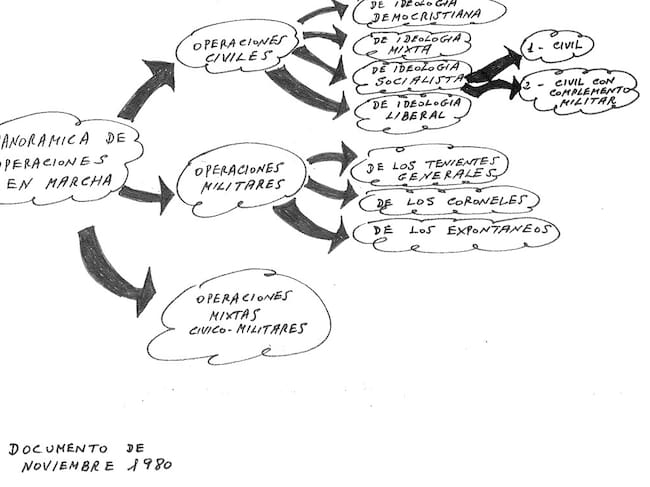 DE IDEOLOGIA
DEMOCRISTIANA
OPERACIONES
CIVILES
DE IDEOLOGIA
MIXTA
DE IDEOLOGIA
SOCIALISTA
1 - CIVIL
2 - CIVIL CON
COMPLEMENTO
MILITAR
DE IDEOLOGIA
LIBERAL
PANORAMICA DE
OPERACIONES
EN MARCHA
OPERACIONES
MILITARES
DE LOS TENIENTES
GENERALES
DE LOS CORONELES
DE LOS EXPONTANEOS
OPERACIONES
MIXTAS
CIVICO-MILITARES
DOCUMENTO DE
NOVIEMBRE 1980